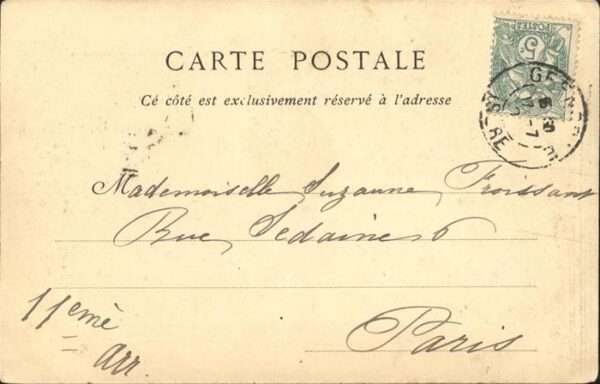 CARTE POSTALE
Cé côté est exclusivement réservé à l'adresse
5
POSTES
Mademoiselle Suzanne Froissant
Rue Sedaine 6
11emè
arr.
Paris